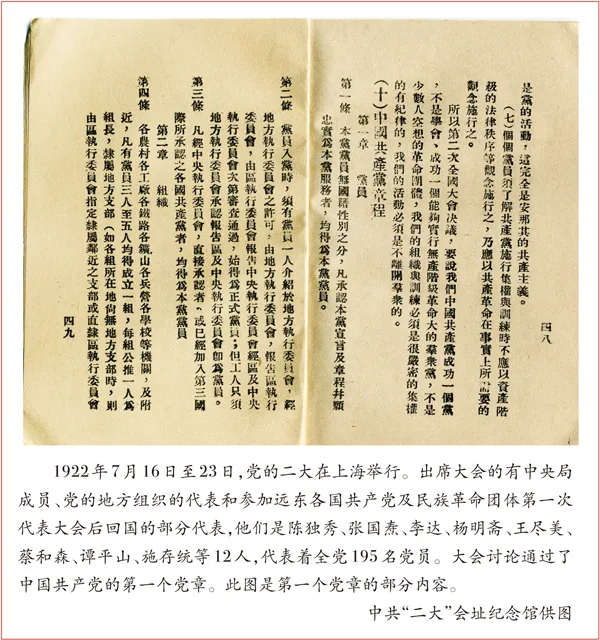 是黨的活動,這完全是安那其的共產主義。
(七)個個黨員須了解共產黨施行集權與訓練時不應以資產階
級的法律秩序等觀念施行之,乃應以共產革命在事實上所需要的
觀念施行之。
所以第二次全國大會決議,要說我們中國共產黨成功一個黨
,不是學會、成功一個能夠實行無產階級革命大的羣衆黨,不是
少數人空想的革命團體,我們的組織與訓練必須是很嚴密的集權
的有紀律的,我們的活動必須是不離開羣衆的。
(十)中國共產黨章程
第一章 黨員
第一條 本黨黨員無國籍性別之分,凡承認本黨宣言及章程幷願
忠實爲本黨服務者,均得爲本黨黨員。
四八
第二條 黨員入黨時,須有黨員一人介紹於地方執行委員會,經
地方執行委員會之許可,由地方執行委員會,報告區執行
委員會,由區執行委員會報告中央執行委員會經區及中央
執行委員會次第審查通過,始得爲正式黨員;但工人只須
地方執行委員會承認報告區及中央執行委員會卽爲黨員。
第三條 凡經中央執行委員會,直接承認者、或已經加入第三國
際所承認之各國共產黨者,均得爲本黨黨員
第二章 組織
第四條 各農村各工廠各鐵路各鑛山各兵營各學校等機關,及附
近,凡有黨員三人至五人均得成立一組,每組公推一人爲
組長,隸屬地方支部(如各組所在地尙無地方支部時,則
由區執行委員會指定隸屬鄰近之支部或直隸區執行委員會
四九
1922年7月16日至23日,党的二大在上海举行。出席大会的有中央局
成员、党的地方组织的代表和参加远东各国共产党及民族革命团体第一次
代表大会后回国的部分代表,他们是陈独秀、张国焘、李达、杨明斋、王尽美、
蔡和森、谭平山、施存统等12人,代表着全党195名党员。大会讨论通过了
中国共产党的第一个党章。此图是第一个党章的部分内容。
中共“二大”会址纪念馆供图